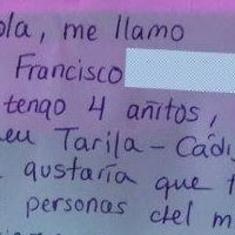 ola, me llamo
Francisco
tengo 4 añitos,
en Tarifa - Cádi
gustaría que t
personas del m